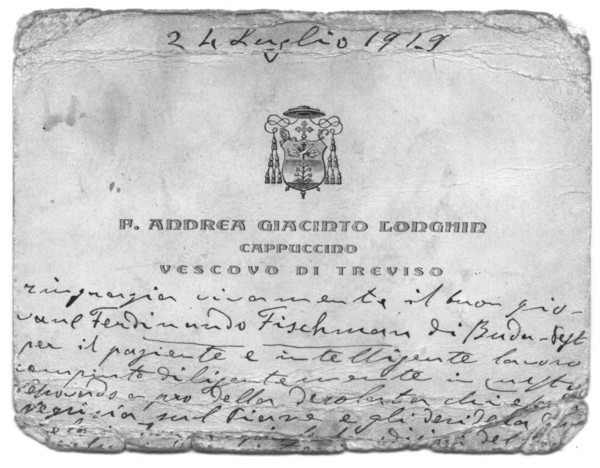 24 Luglio 1919
F. ANDREA GIACINTO LONGHIN
CAPPUCCINO
VESCOVO DI TREVISO
ringrazia vivamente il buon gio-
vane Ferdinando Fischman di Buda-Pest
per il paziente e intelligente lavoro
compiuto diligentemente in questo
a pro della desolata chiesa
sul Piave e gli desidera